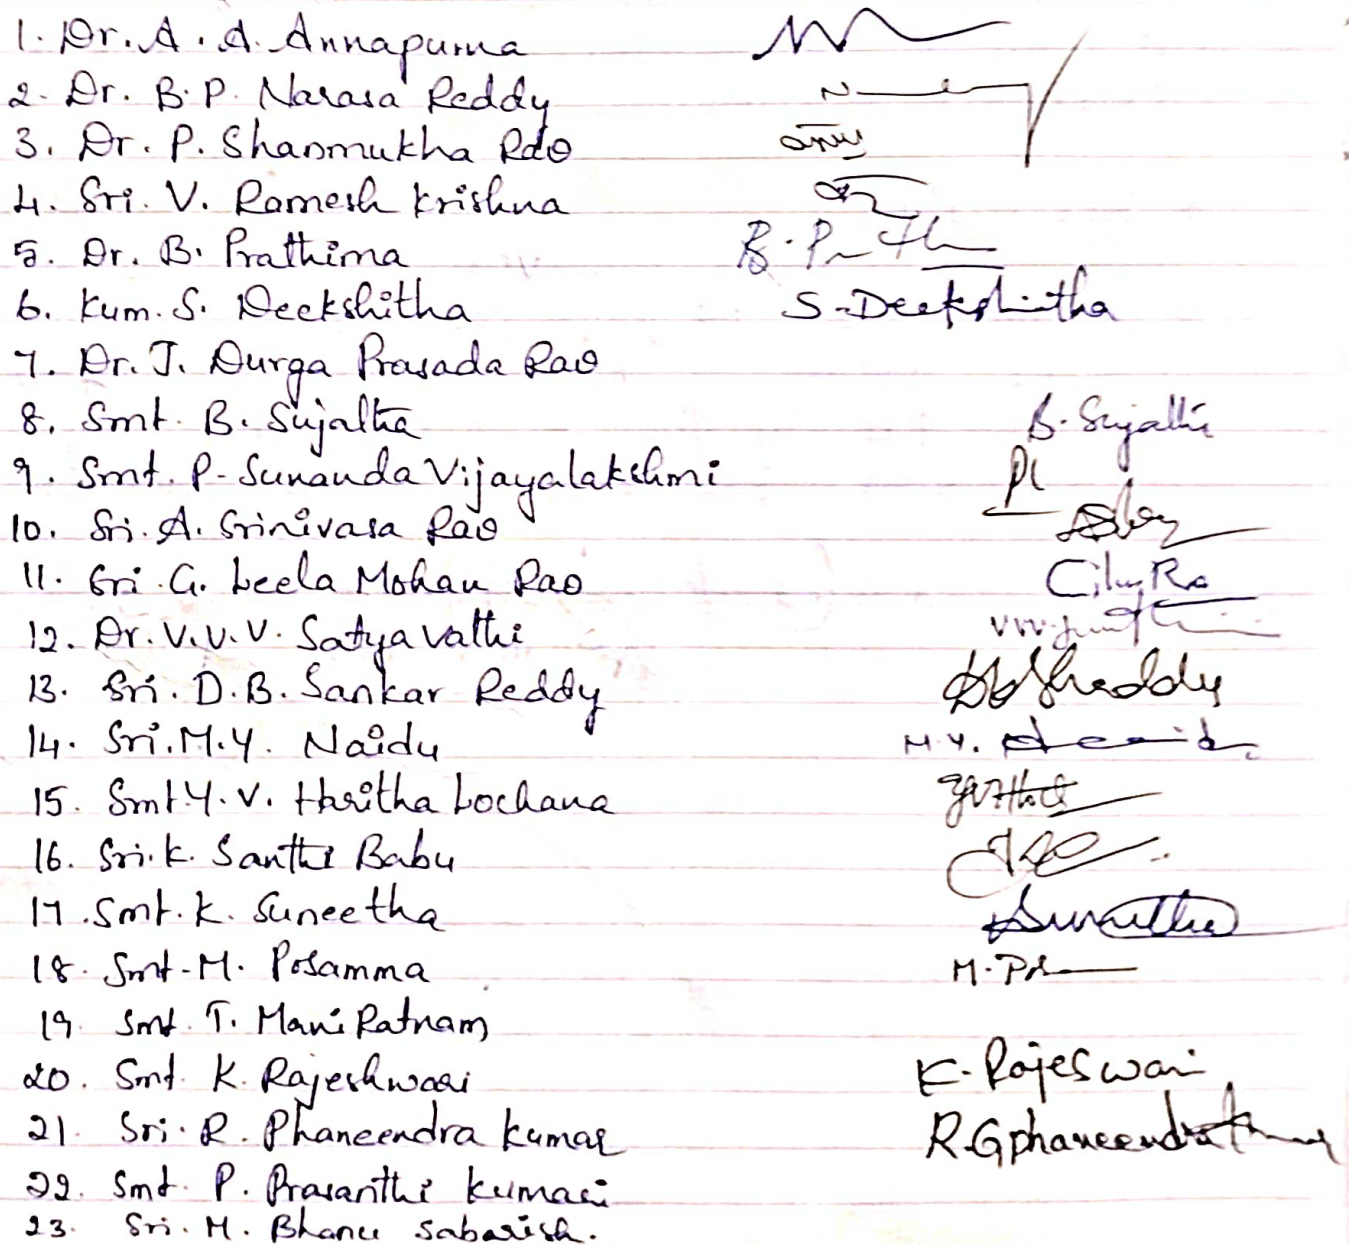 1. Dr. A. A. Annapurna
2. Dr. B. P. Narasa Reddy
3. Dr. P. Shanmukha Rao
4. Sri. V. Ramesh Krishna
5. Dr. B. Prathima
6. Kum. S. Deekshitha S-Deekshitha
7. Dr. J. Durga Prasada Rao
8. Smt. B. Sujatha B. Sujatha
9. Smt. P. Sunanda Vijayalakshmi
10. Sri. A. Srinivasa Rao
11. Sri. G. Leela Mohan Rao
12. Dr. V.V.V. Satyavathi
13. Sri. D.B. Sankar Reddy
14. Sri. M.Y. Naidu M.Y.
15. Smt. Y. V. Haritha Lochana
16. Sri. K. Santhi Babu
17. Smt. K. Suneetha Suneetha
18. Smt. M. Posamma M.
19 Smt. T. Mani Ratnam
20. Smt. K. Rajeshwari K. Rajeswari
21. Sri. R. Phaneendra Kumar R.G phaneendra
22. Smt. P. Prasanthi Kumari
23. Sri. M. Bhanu Sabarish.